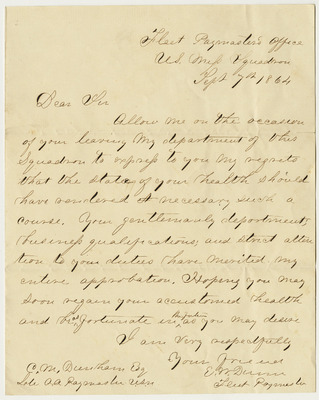 Fleet Paymaster's Office
US Miss Squadron
Sept 7th 1864
Dear Sir
Allow me on the occasion
of your leaving my department of this
Squadron to express to you my regrets
that the state of your health should
have rendered it necessary such a
course. Your gentlemanly deportment,
business qualifications, and strict atten
tion to your duties have merited my
entire approbation. Hoping you may
soon regain your accustomed health
and be fortunate in, as you may desire
I am Very respectfully
Your friend
E. W. Dunn
Fleet Paymaster
C. M. Burnham Esq
Late A A Paymaster USN